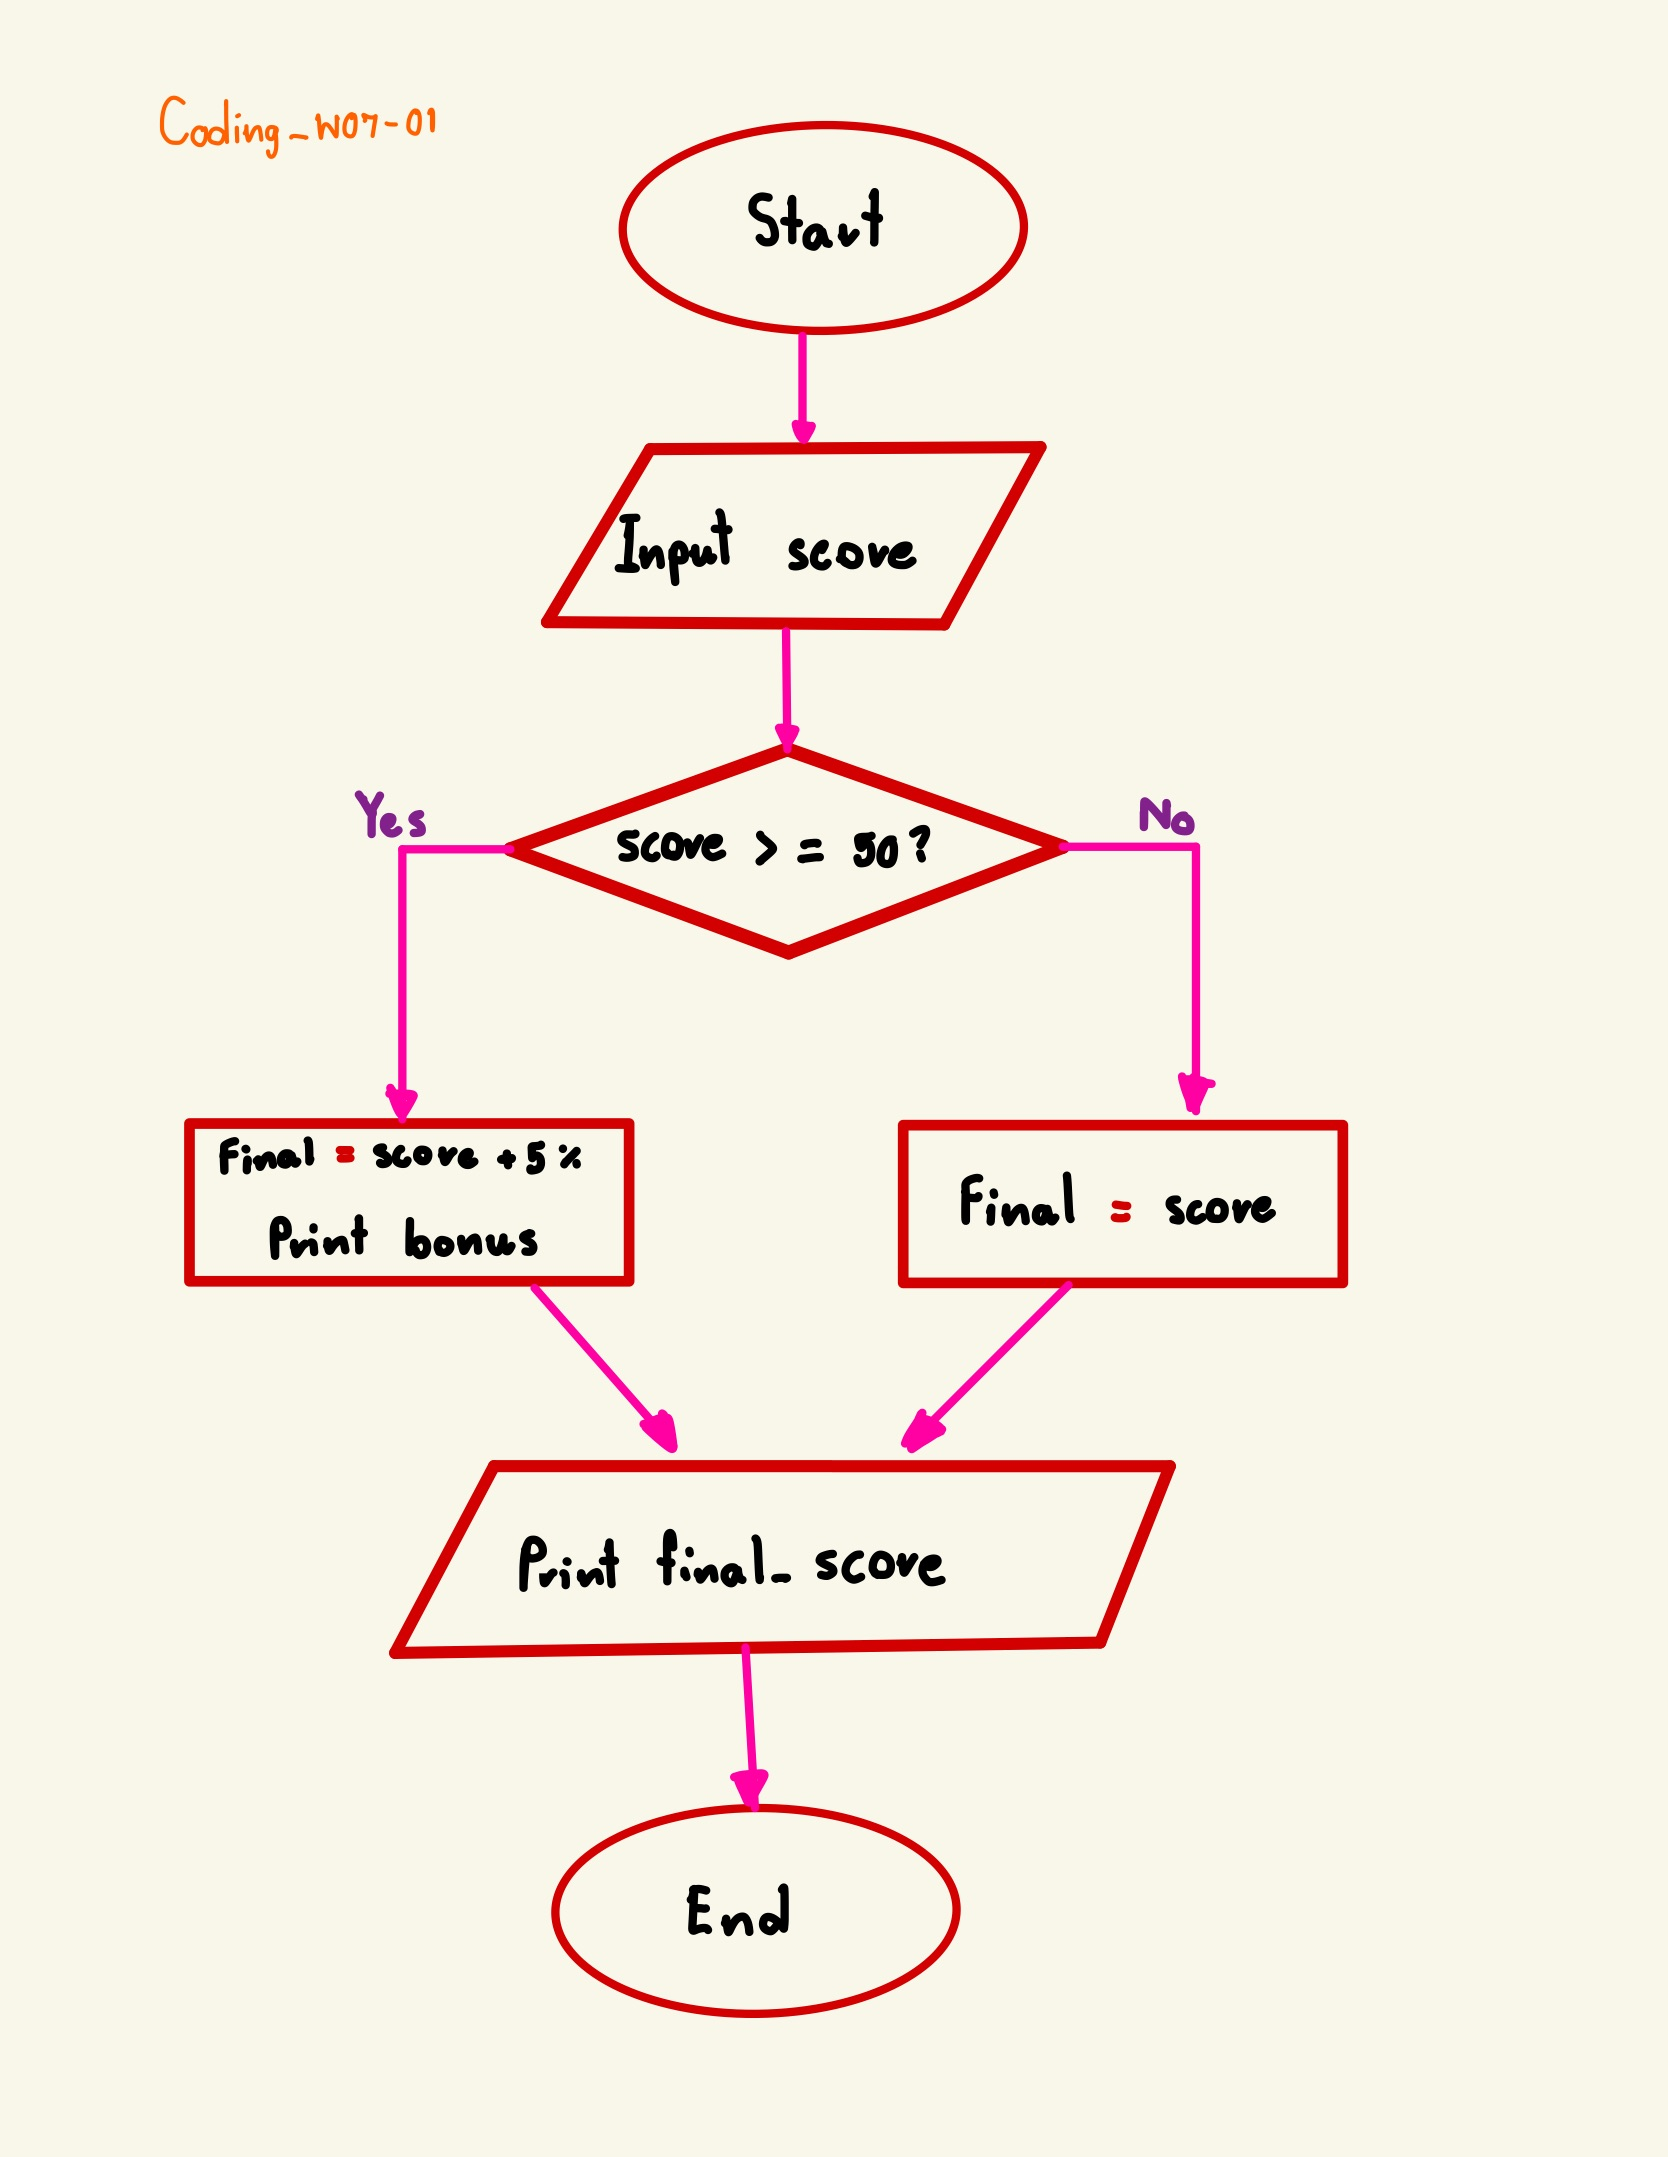 Coding_W07-01
Start
Input score
Yes
No
score > =
Final = score + 5 %
Print bonus
Final = score
Print final_ score
End